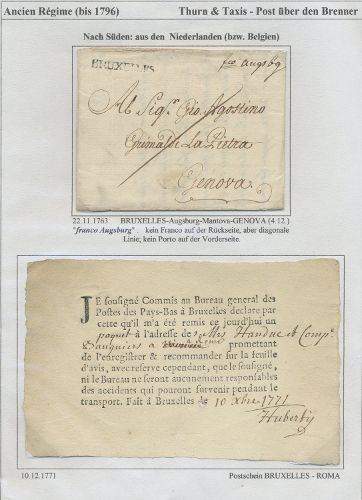 Ancien Régime (bis 1796) Thurn & Taxis - Post über den Brenner
Nach Süden: aus den Niederlanden (bzw. Belgien)
BRUXELLES fco Augsbg
Al Sigr. Gio. Agostino
Grimaldi La Pietra
Genova
22.11.1763 BRUXELLES-Augsburg-Mantova-GENOVA (4.12.)
"franco Augsburg" . kein Franco auf der Rückseite, aber diagonale
Linie; kein Porto auf der Vorderseite.
JE sousigné Commis au Bureau general des
Postes des Pays-Bas à Bruxelles declare par
cette qu'il m'a été remis ce jourd'hui un
paquet à l'adresse de Mrs et Compe.
Banquiers a Rome promettant
de l'enrégistrer & recommander sur la feuille
d'avis, avec reserve cependant, que le sousigné,
ni le Bureau ne seront aucunement responsables
des accidents qui pouront survenir pendant le
transport. Fait à Bruxelles le 10 Xbre 1771
10.12.1771 Postschein BRUXELLES - ROMA